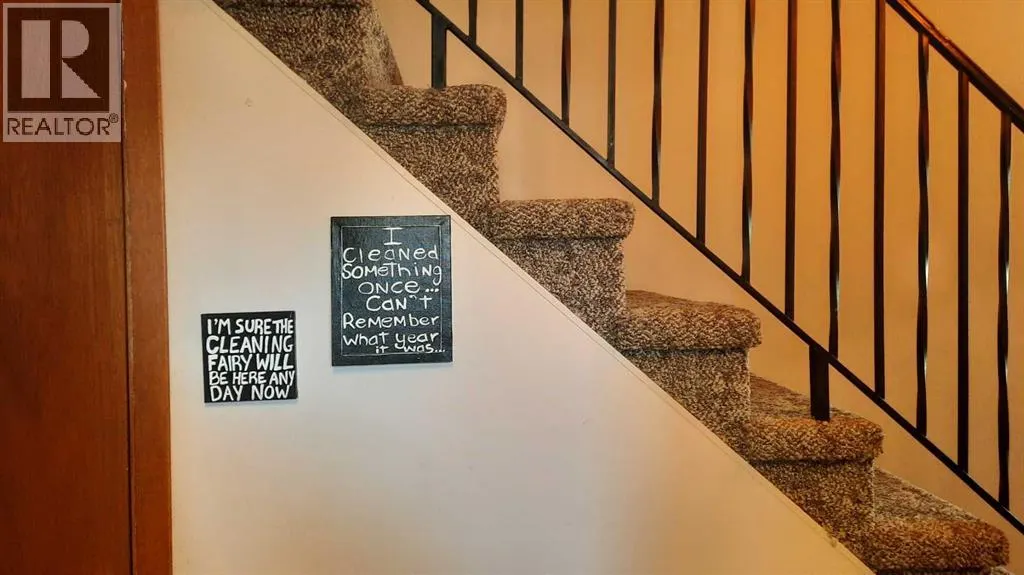 R
REALTOR®
I
Cleaned
Something
once...
Can't
Remember
what year
it was...
I'M SURE THE
CLEANING
FAIRY WILL
BE HERE ANY
DAY NOW